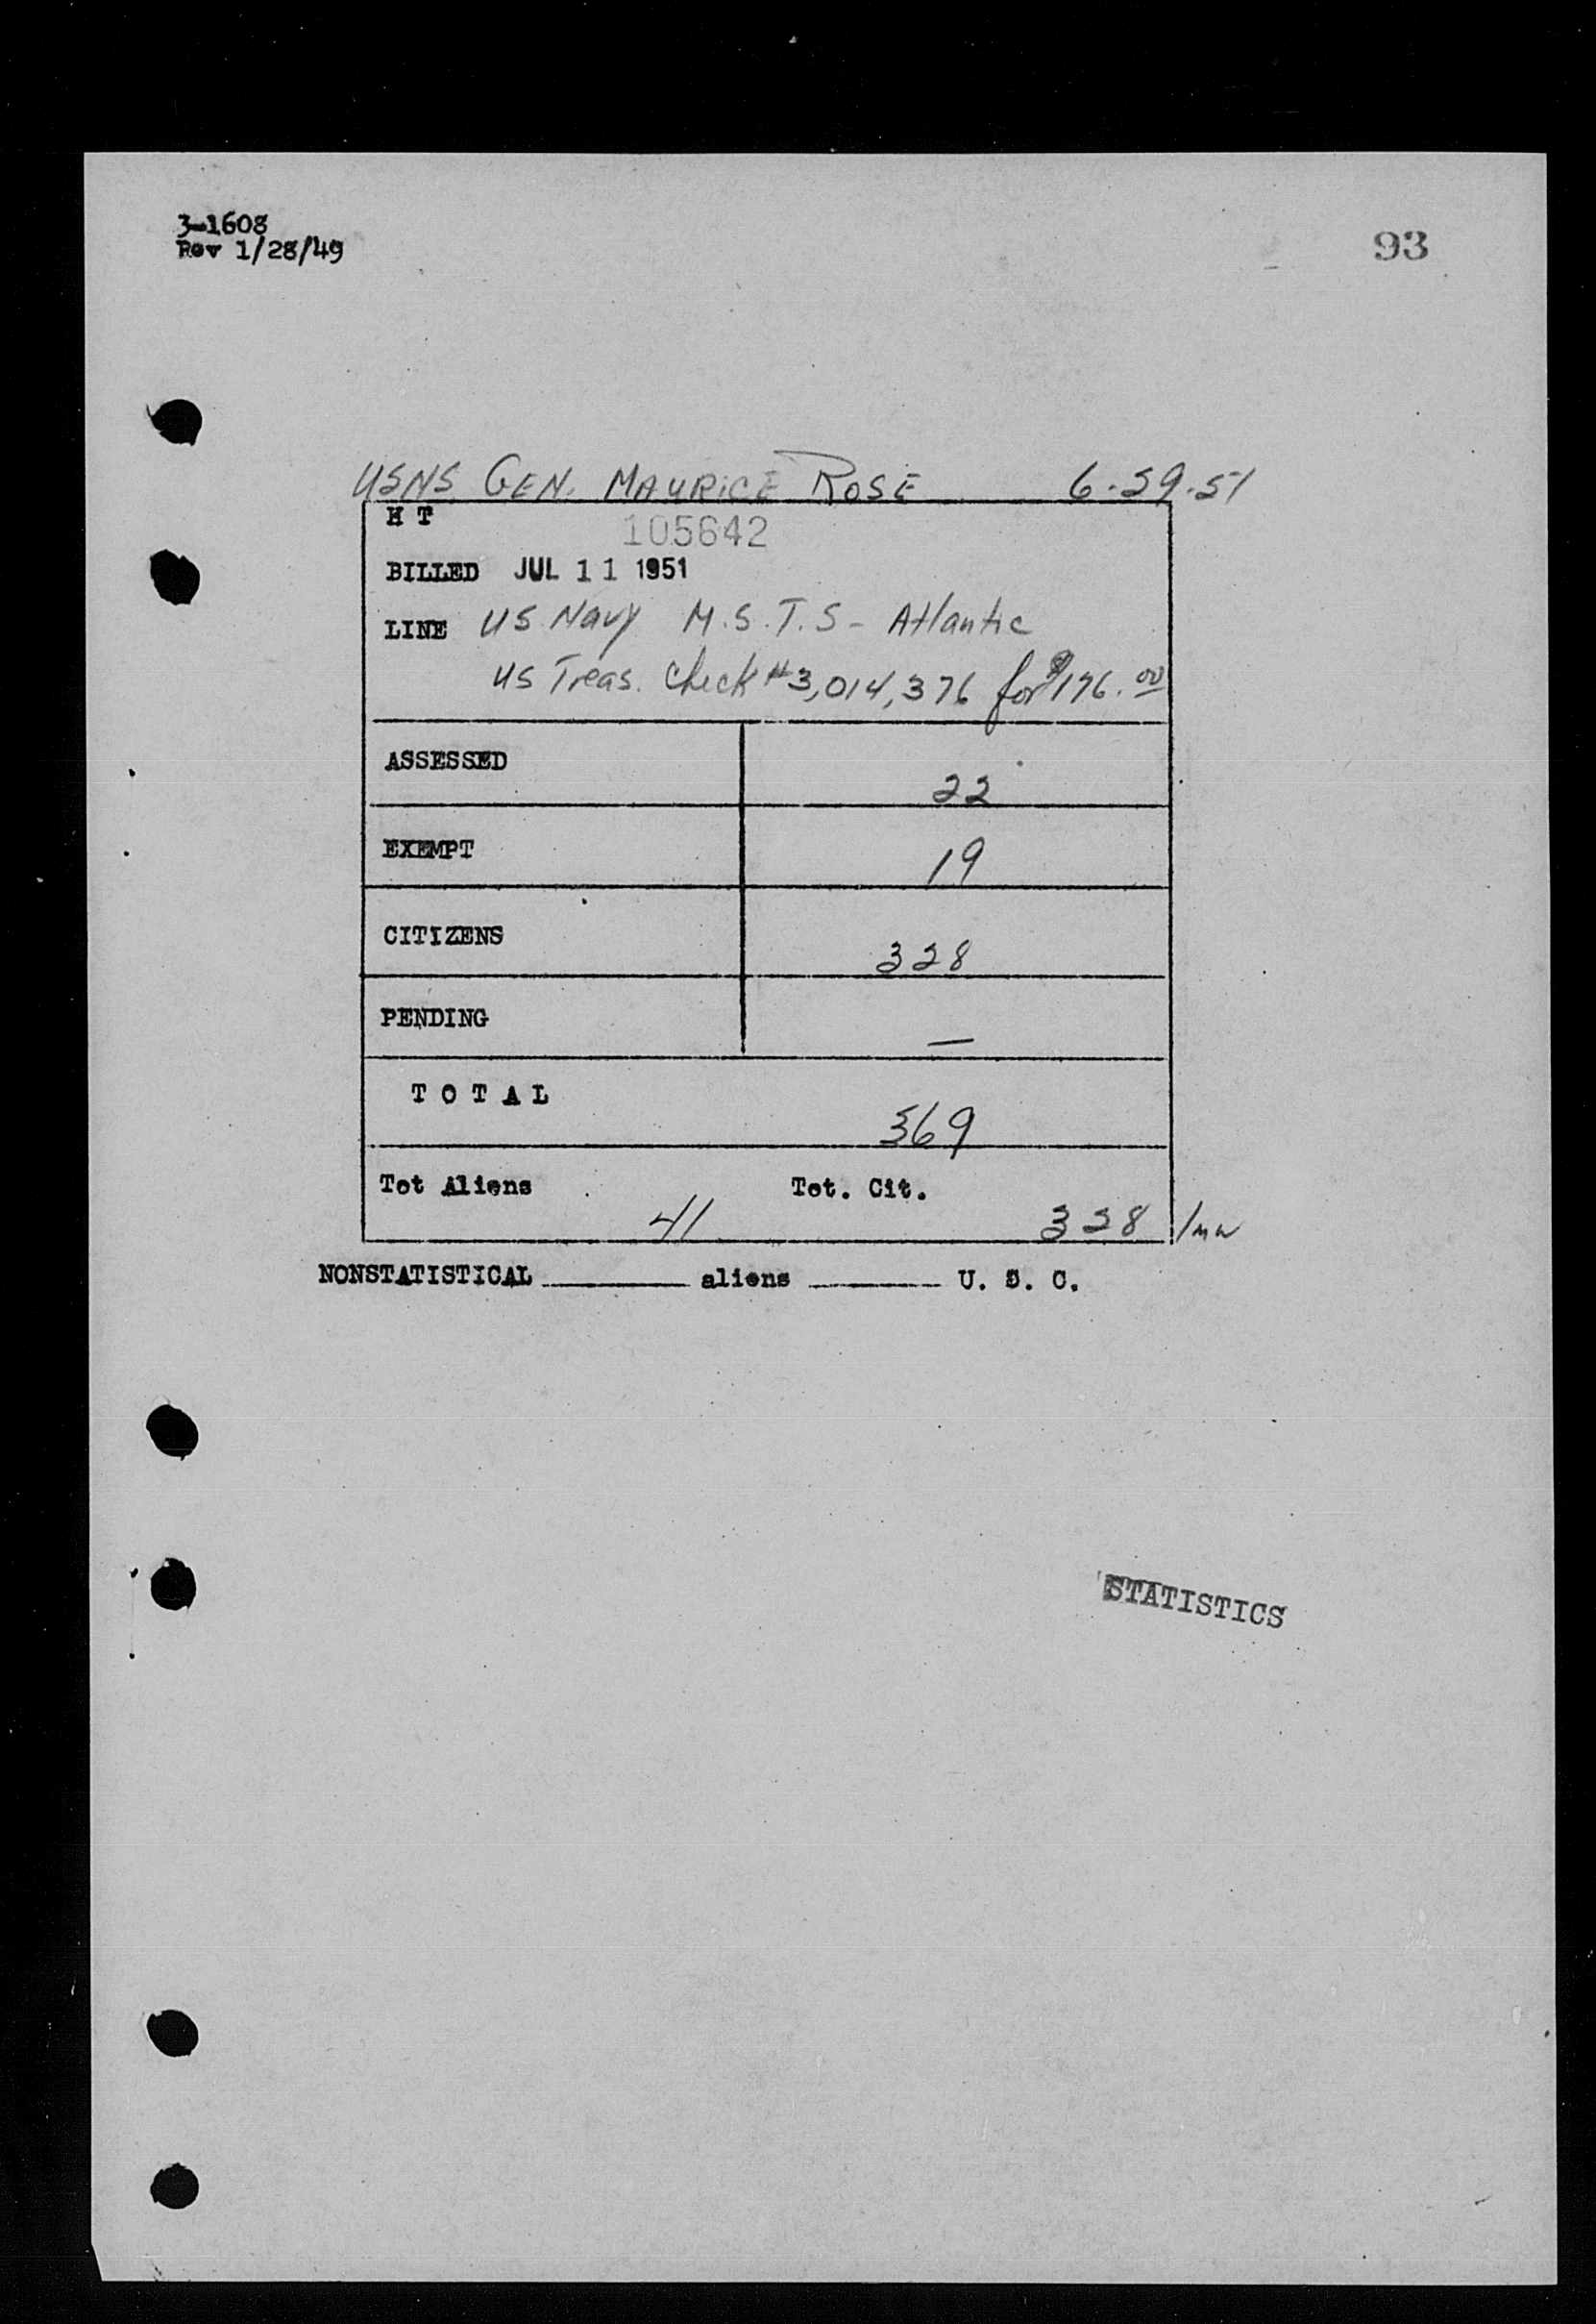 3-1608
Rev 1/28/49
93
USNS GEN. MAURICE ROSE 6-29-51
H T 105642
BILLED JUL 11 1951
LINE US Navy M.S.T.S - Atlantic
US Treas. Check #3,014,376 for $176.00
ASSESSED 22
EXEMPT 19
CITIZENS 328
PENDING —
TOTAL 369
Tot Aliens 41 Tot. Cit. 328
NONSTATISTICAL ______ aliens ______ U. S. C.
STATISTICS